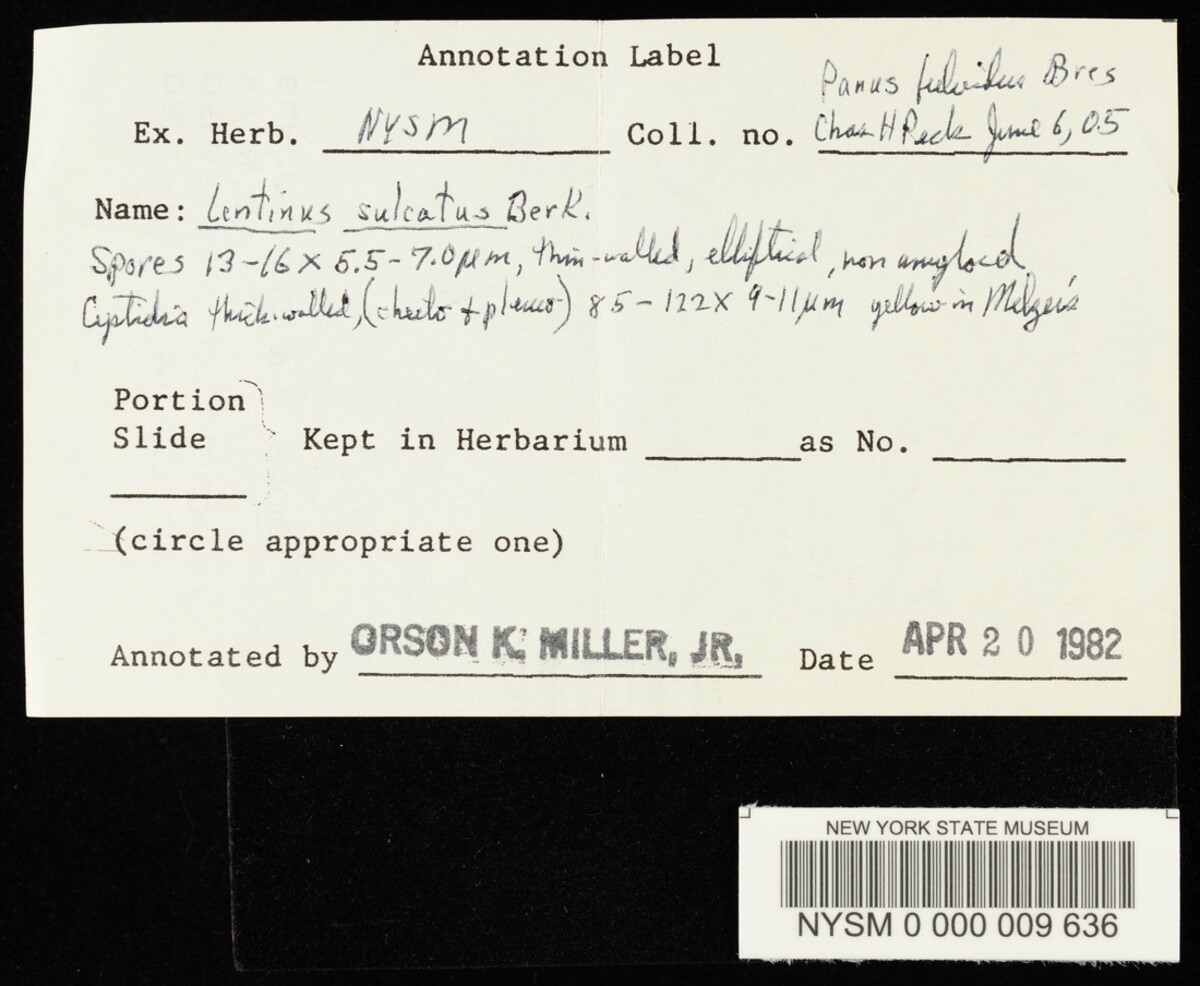 Annotation Label
Panus fulvidus Bres
Ex. Herb. NYSM Coll. no. Chas H Peck June 6, 05
Name: Lentinus sulcatus Berk.
Spores 13-16 X 5.5-7.0 µm, thin-walled, elliptical, non amyloid
Cystidia thick-walled, (cheilo & pleuro) 85-122 X 9-11 µm yellow in Melzer's
Portion
Slide Kept in Herbarium as No.
(circle appropriate one)
Annotated by ORSON K. MILLER, JR. Date APR 20 1982
NEW YORK STATE MUSEUM
NYSM 0 000 009 636